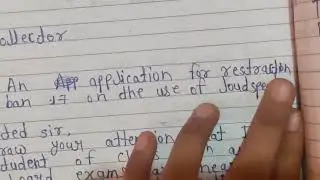 ollector
An application for restraction
ban 17 on the use of loudspe
ded sir,
raw your attention
tudent of class
board exam near